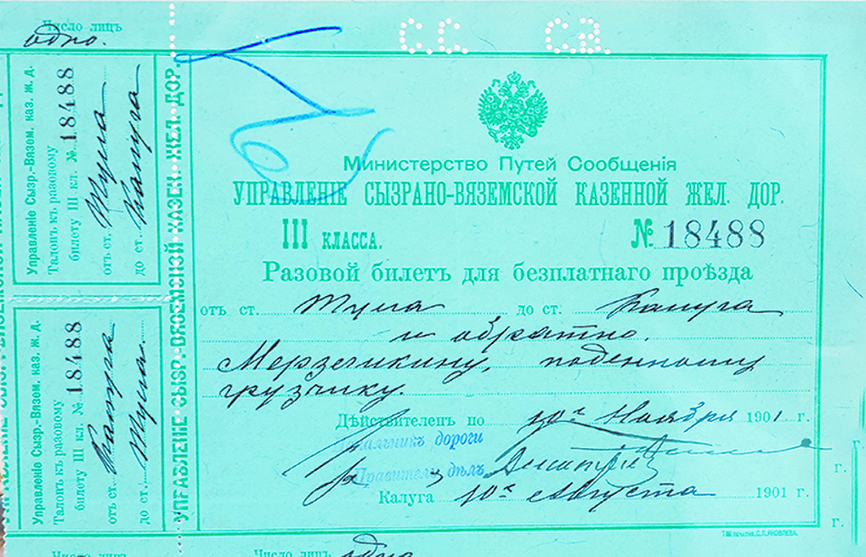 Число лицъ
одно.
Управленіе Сызр.-Вязем. каз. ж. д.
Талонъ къ разовому
билету III кл. № 18488
отъ ст. Тула
до ст. Калуга
Управленіе Сызр.-Вязем. каз. ж. д.
Талонъ къ разовому
билету III кл. № 18488
отъ ст. Калуга
до ст. Тула.
УПРАВЛЕНІЕ СЫЗР.-ВЯЗЕМСКОЙ КАЗЕН. ЖЕЛ. ДОР.
С.С. С.В.
Министерство Путей Сообщенія
УПРАВЛЕНІЕ СЫЗРАНО-ВЯЗЕМСКОЙ КАЗЕННОЙ ЖЕЛ. ДОР.
III КЛАССА. № 18488
Разовой билетъ для безплатнаго проѣзда
отъ ст. Тула до ст. Калуга
и обратно.
Мерзечикину, поденному
грузчику.
Дѣйствителенъ по 10го Ноября 1901 г.
Начальникъ дороги
Правитель дѣлъ
Калуга 10го Августа 1901 г.
Число лицъ одно